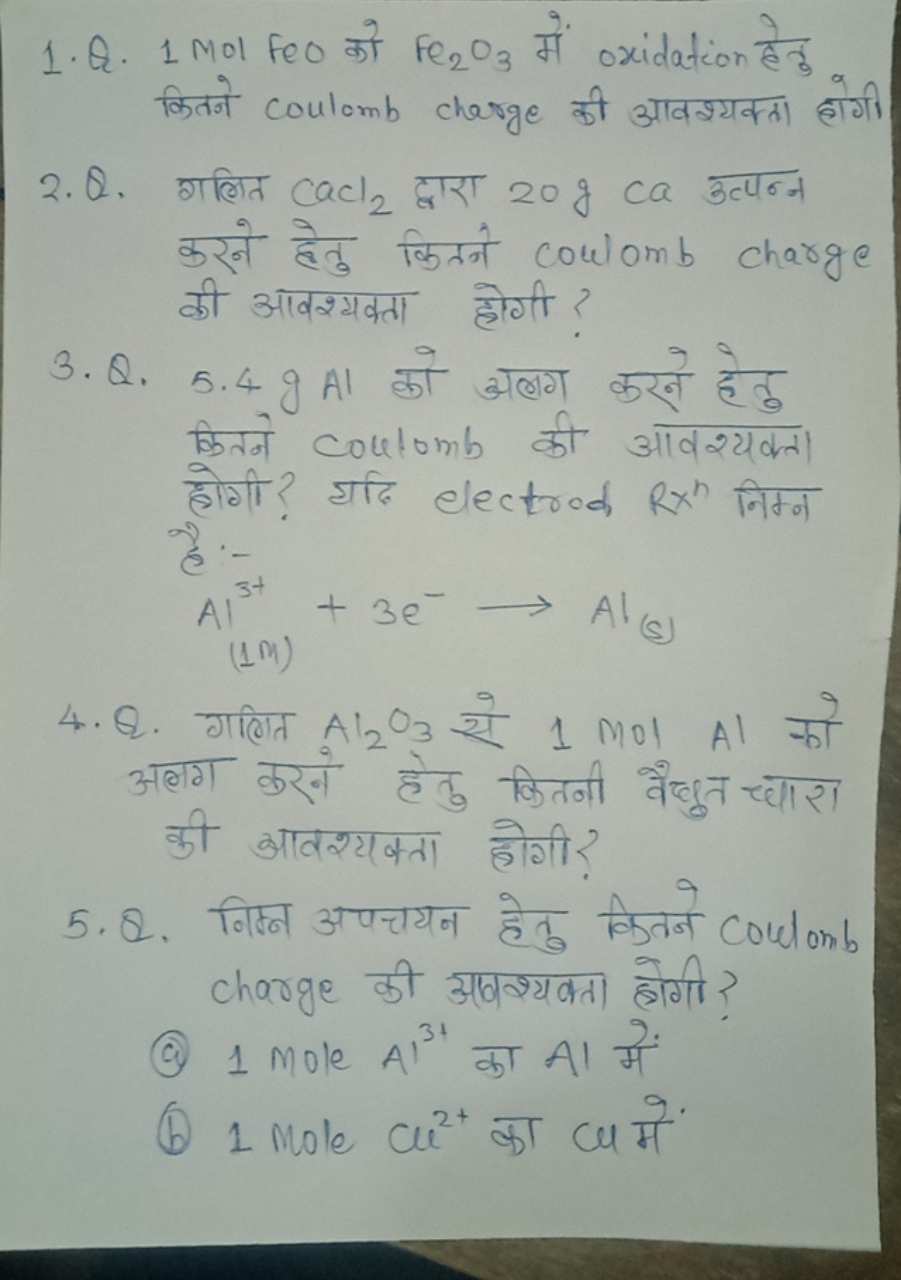 1. Q. 1 Mol FeO को Fe₂O₃ में oxidation हेतु
कितने coulomb charge की आवश्यक्ता होगी
2. Q. गलित CaCl₂ द्वारा 20 g Ca उत्पन्न
करने हेतु कितने coulomb charge
की आवश्यक्ता होगी ?
3. Q. 5.4 g Al को अलग करने हेतु
कितने coulomb की आवश्यक्ता
होगी? यदि electrod Rxⁿ निम्न
है :-
Al³⁺ + 3e⁻ → Al(s)
(1M)
4. Q. गलित Al₂O₃ से 1 Mol Al को
अलग करने हेतु कितनी वैधुत ध्धारा
की आवश्यक्ता होगी?
5. Q. निम्न अपचयन हेतु कितने coulomb
charge की आवश्यक्ता होगी?
ⓐ 1 Mole Al³⁺ का Al में
ⓑ 1 Mole Cu²⁺ का Cu में